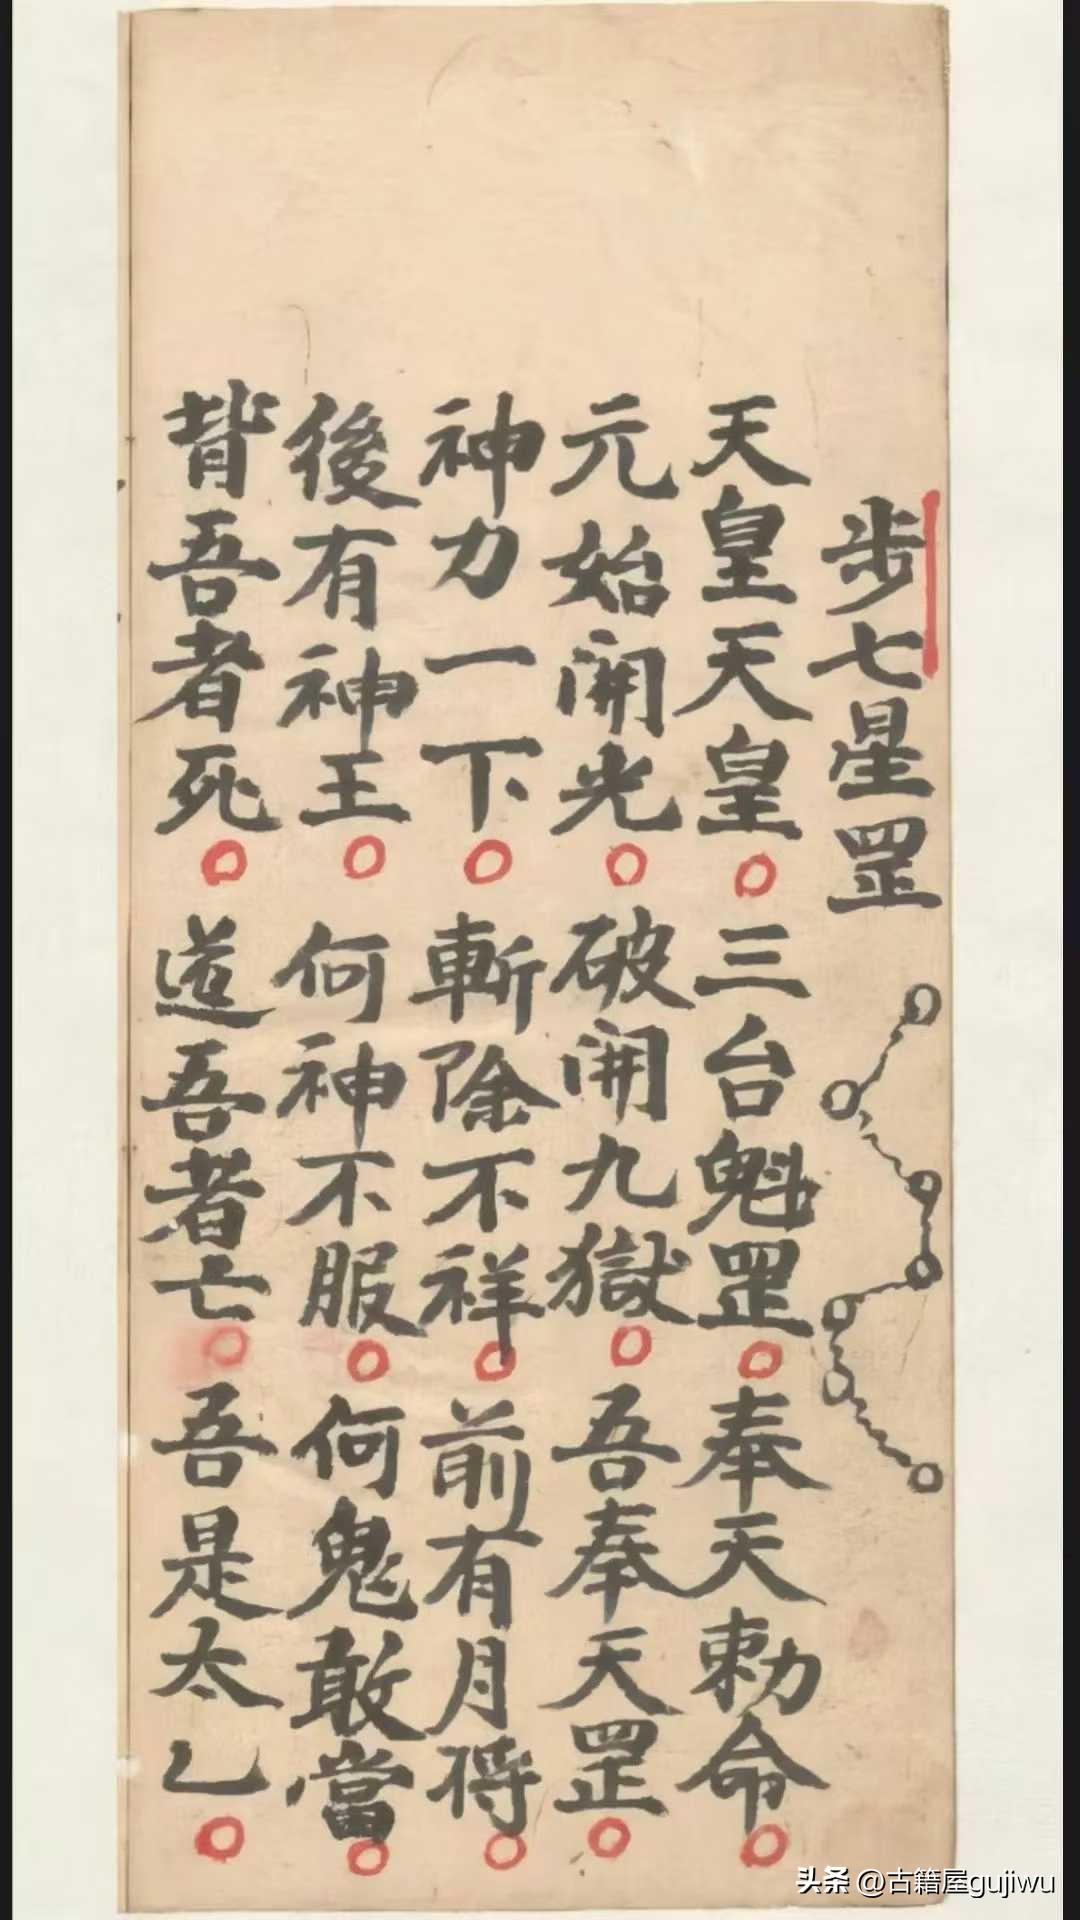 步七星罡
天皇天皇○三台魁罡○奉天勅命○
元始開光○破開九獄○吾奉天罡○
神力一下○斬除不祥○前有月将○
後有神王○何神不服○何鬼敢當○
背吾者死○道吾者亡○吾是太乙○
头条 @古籍屋gujiwu